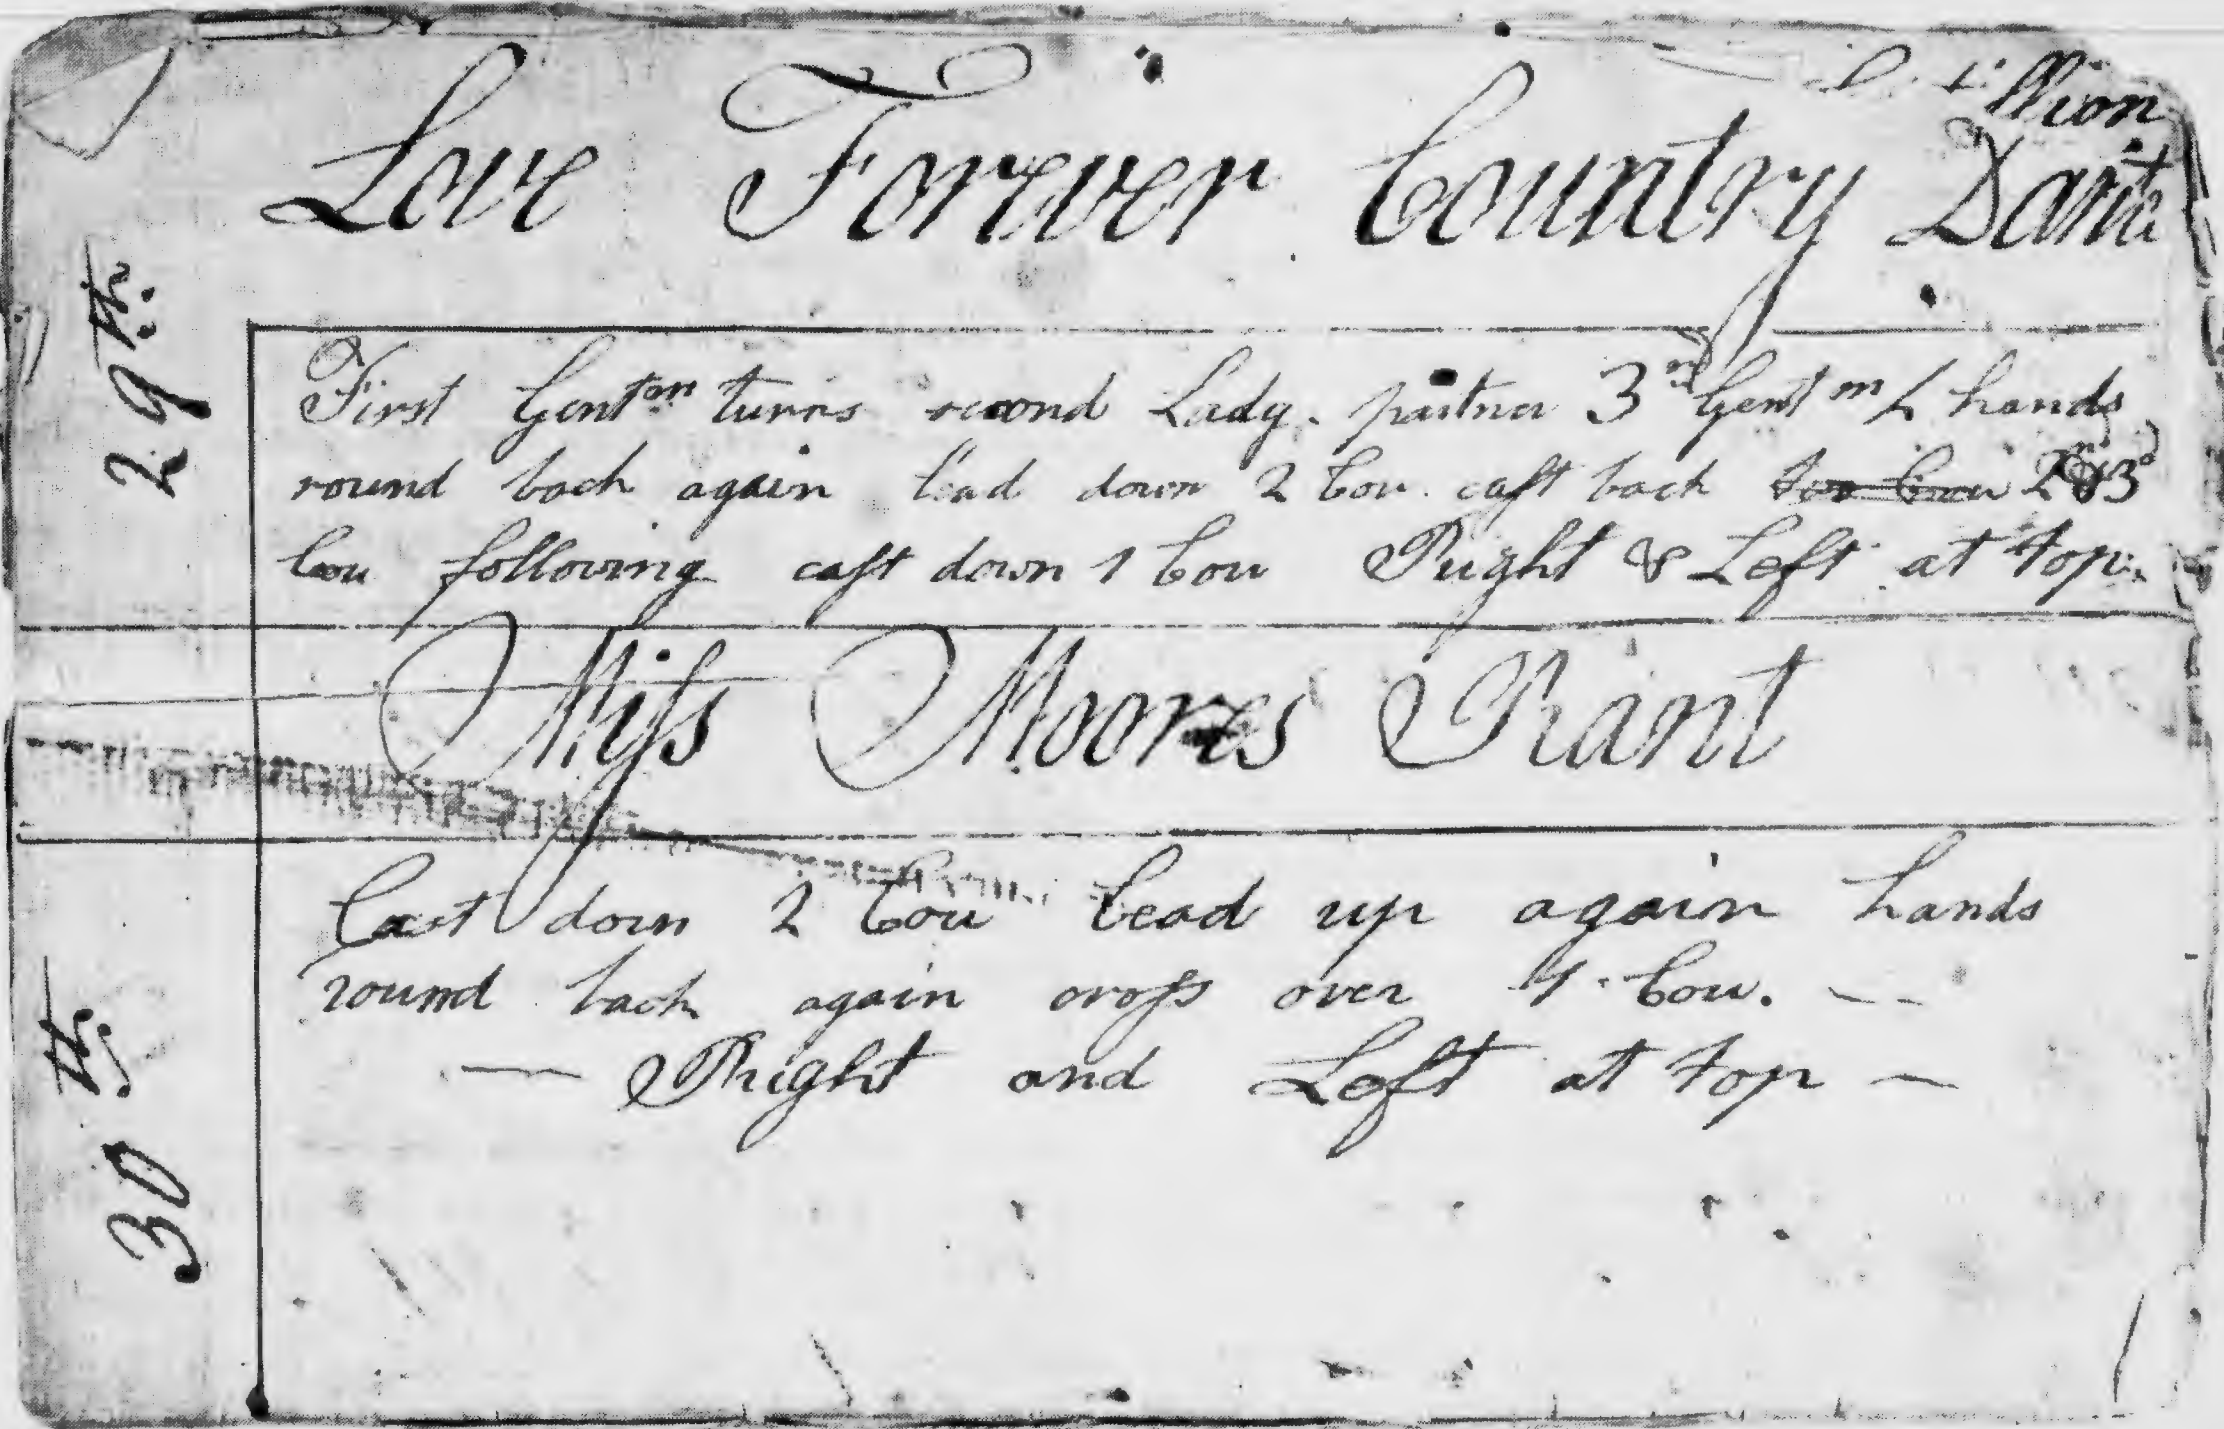 Love Forever Country Dance
29th.
First Gentm turns second Lady. partner 3rd Gentm 4 hands
round back again lead down 2 Cou. cast back 2nd & 3d
Cou following cast down 1 Cou Right & Left at top.
Miss Moores Rant
30th.
Cast down 2 Cou lead up again hands
round back again cross over 1. Cou. —
— Right and Left at top —